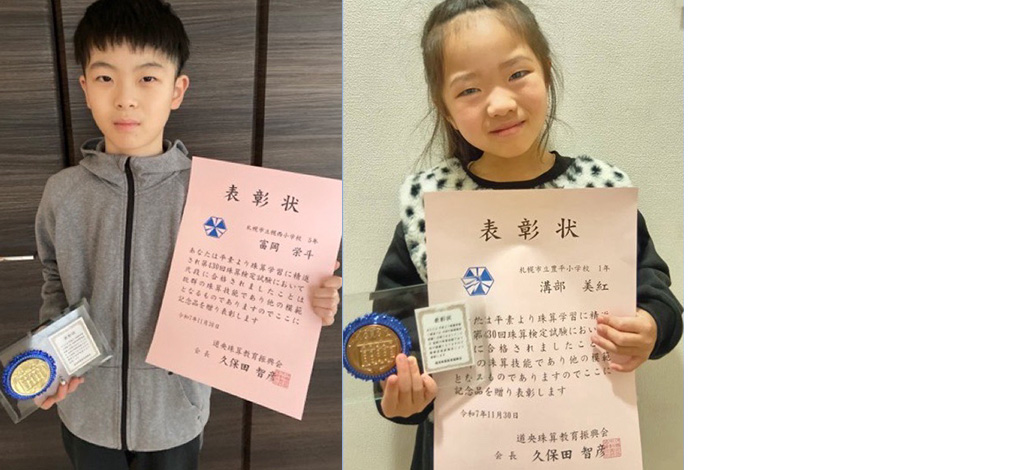 表彰状
札幌市立幌西小学校 5年
富岡 栄斗
あなたは平素より珠算学習に精進
され第430回珠算検定試験において
弐段に合格されましたことは
抜群の珠算技能であり他の模範
となるものでありますのでここに
記念品を贈り表彰します
令和7年11月30日
道央珠算教育振興会
会長 久保田 智彦
表彰状
札幌市立豊平小学校 1年
溝部 美紅
たは平素より珠算学習に精進
第430回珠算検定試験におい
に合格されましたこと
の珠算技能であり他の模範
となるものでありますのでここに
記念品を贈り表彰します
令和7年11月30日
道央珠算教育振興会
会長 久保田 智彦
表彰状